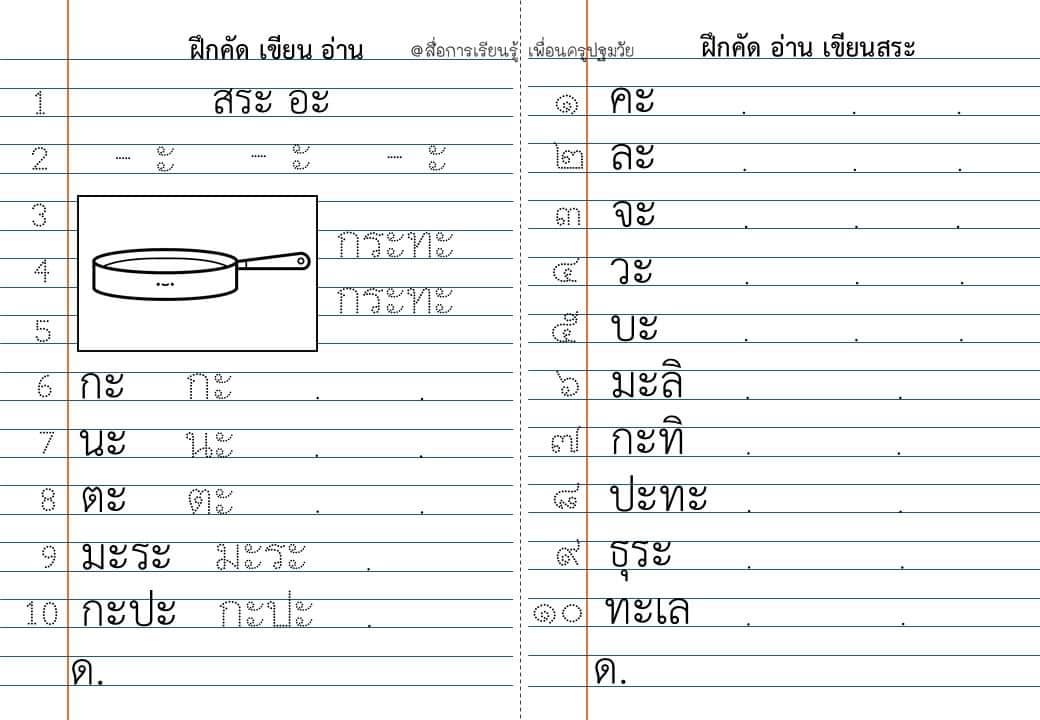 ฝึกคัด เขียน อ่าน
@สื่อการเรียนรู้ เพื่อนครูปฐมวัย
1 สระ อะ
2 -ะ -ะ -ะ
3 กระทะ
4 กระทะ
5
6 กะ กะ . .
7 นะ นะ . .
8 ตะ ตะ . .
9 มะระ มะระ .
10 กะปะ กะปะ .
ด.
ฝึกคัด อ่าน เขียนสระ
๑ คะ . . .
๒ ละ . . .
๓ จะ . . .
๔ วะ . . .
๕ บะ . . .
๖ มะลิ . .
๗ กะทิ . .
๘ ปะทะ . .
๙ ธุระ . .
๑๐ ทะเล . .
ด.